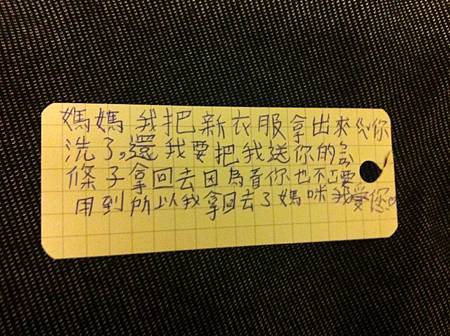 媽媽我把新衣服拿出來ㄍㄟ你
洗了,還我要把我送你的
條子拿回去因為音你也不口要
用到所以我拿回去了媽咪我愛您♡